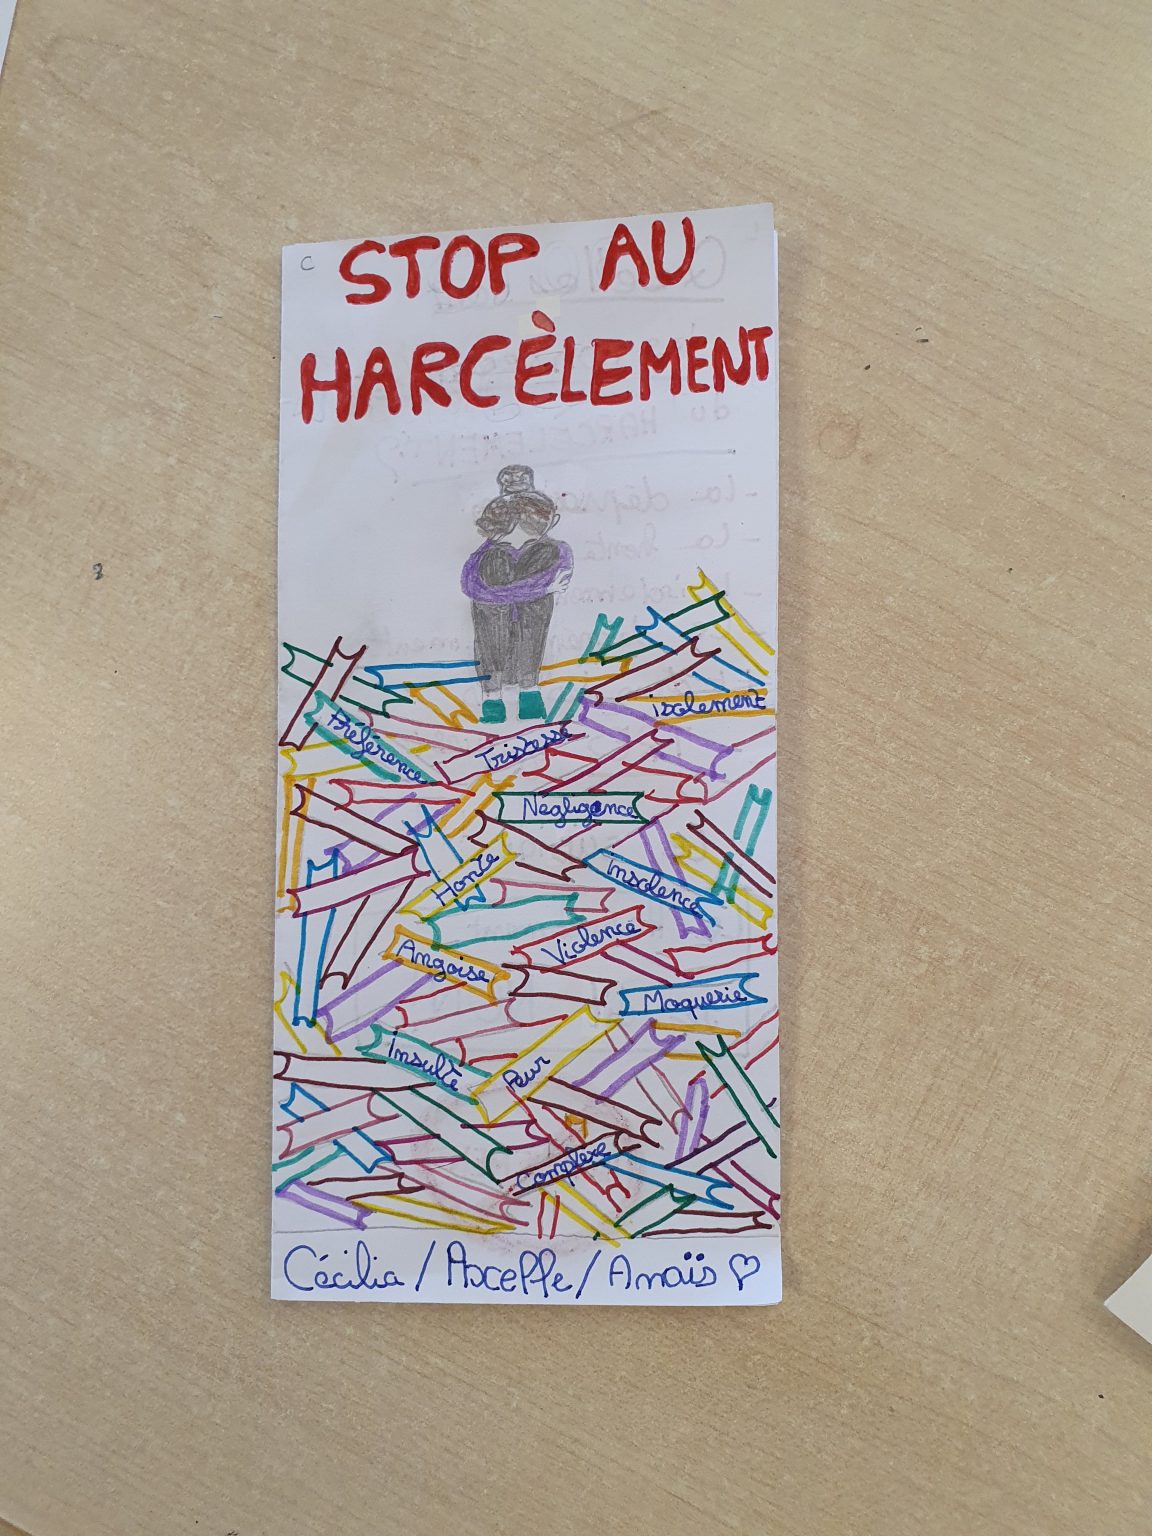 C
STOP AU
HARCÈLEMENT
isolement
Préférence
Tristesse
Négligence
Honte
insolence
Violence
Angoise
Moquerie
insulte
Peur
Complexe
Cécilia / Axelle / Anaïs ♡